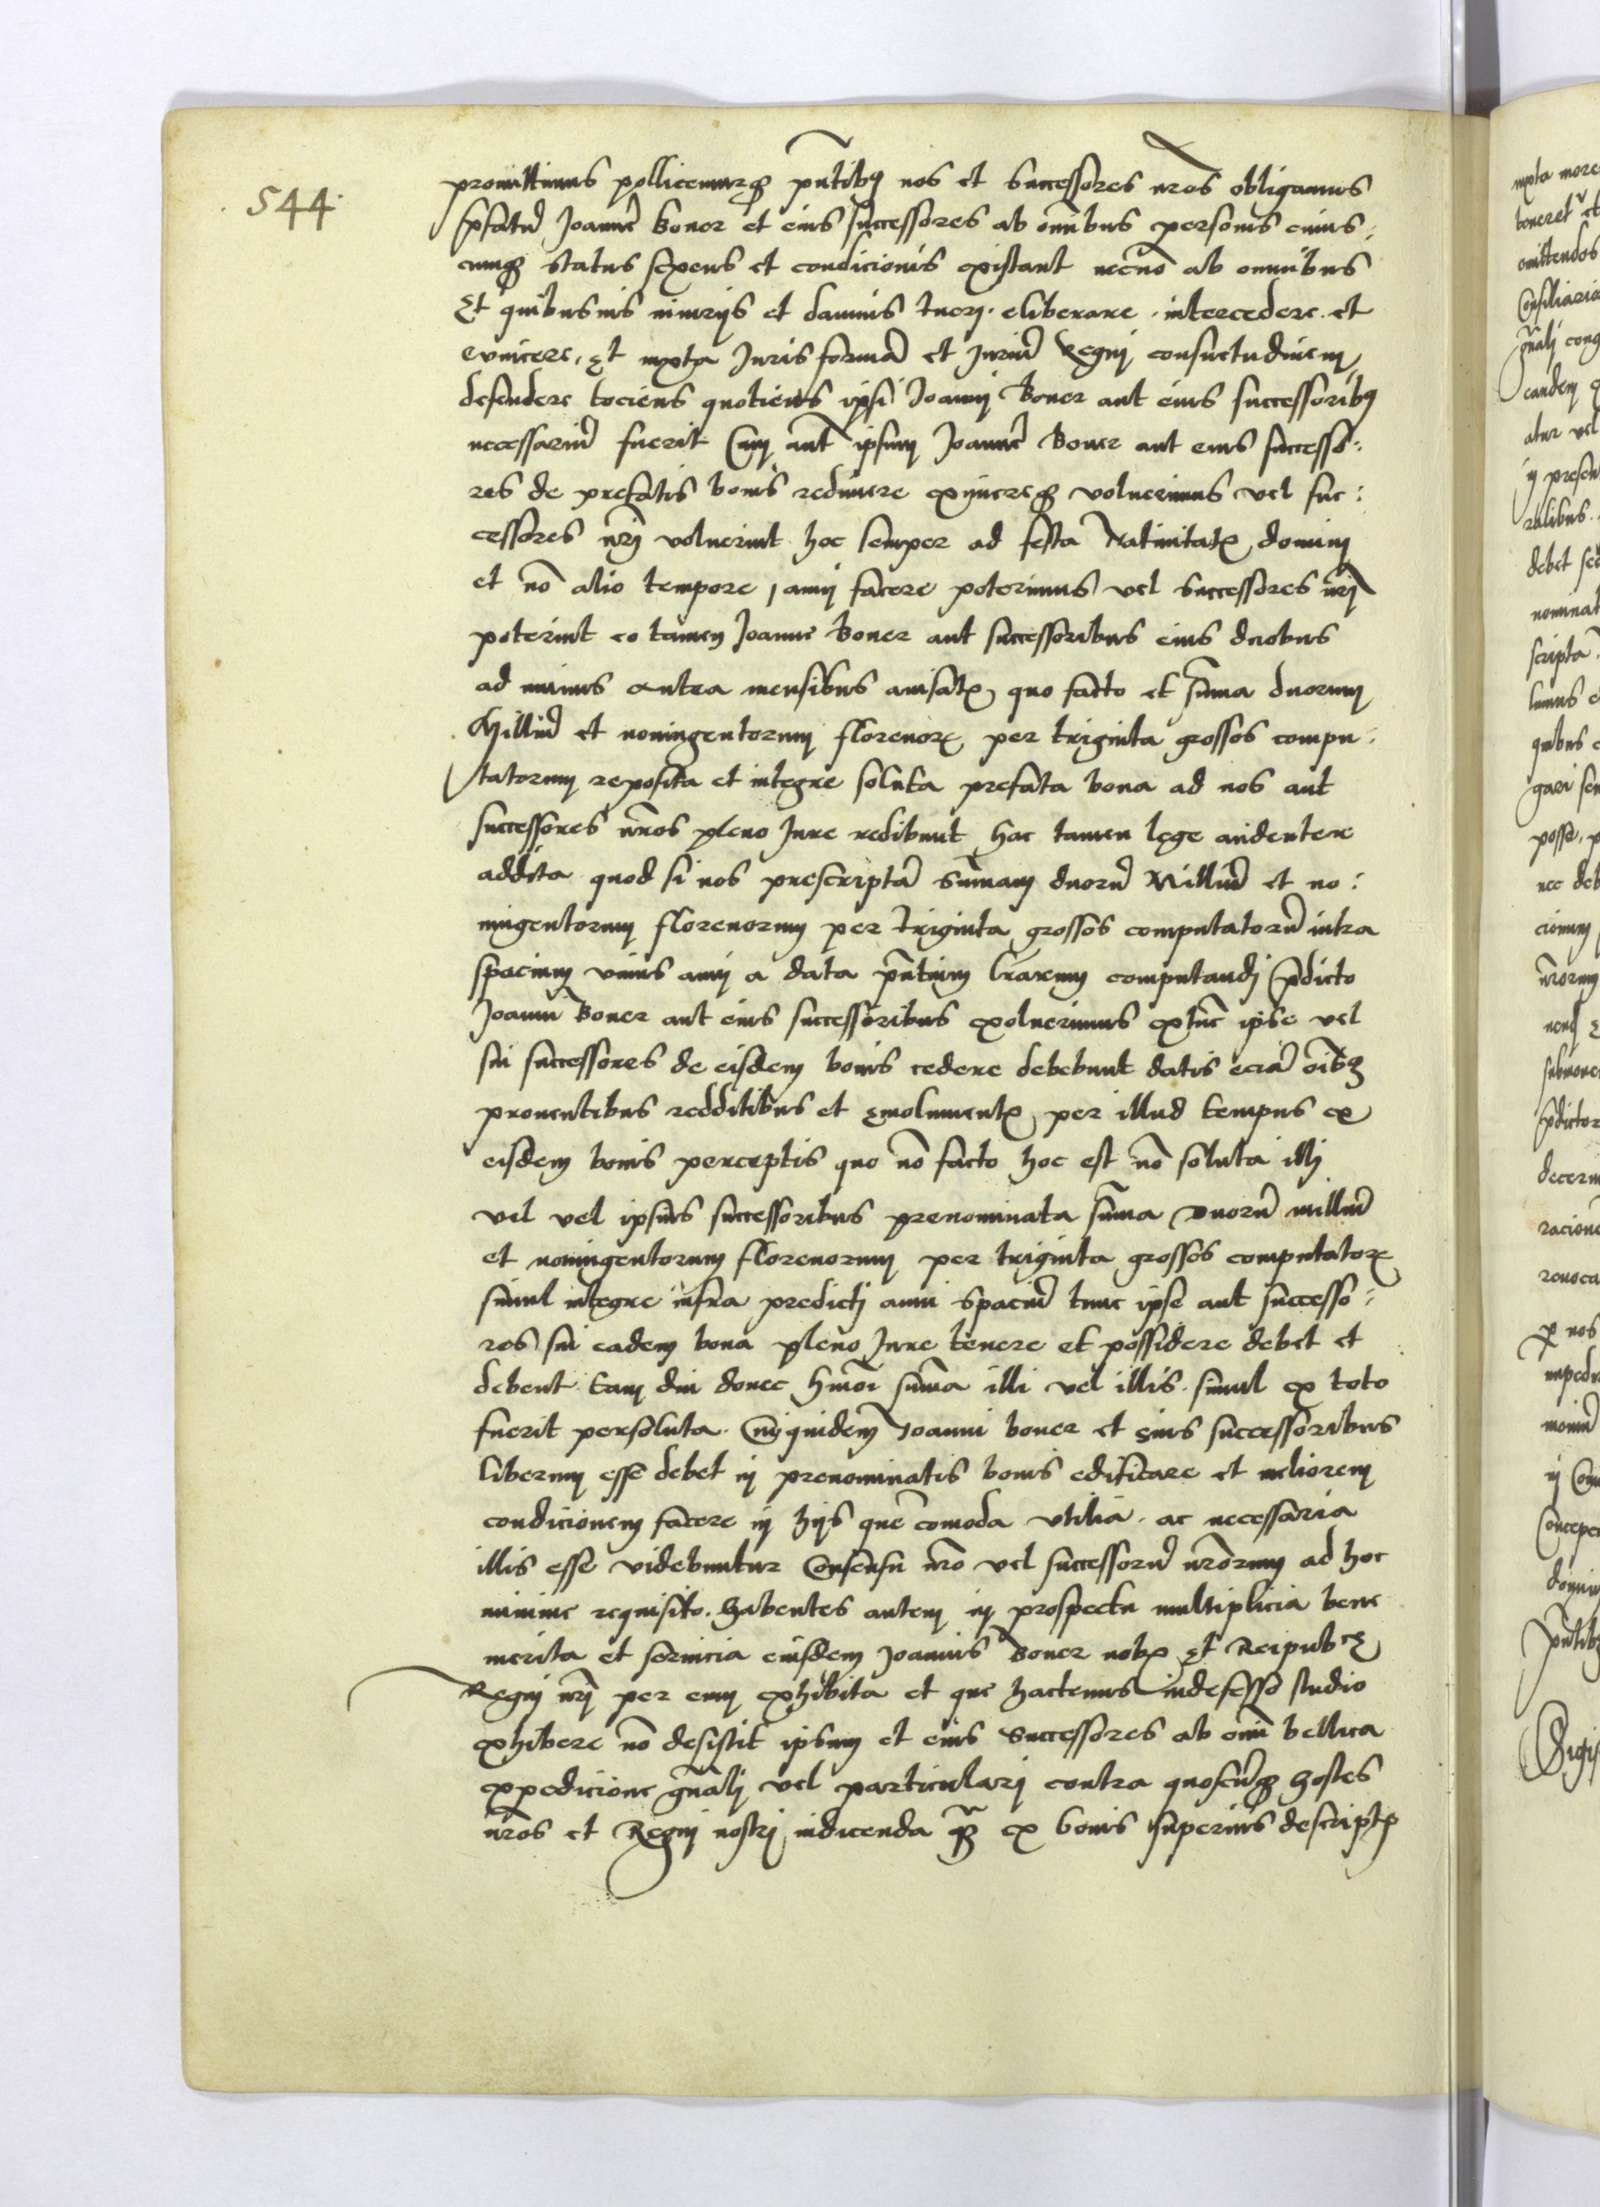 544
promittimus pollicemurq̃ pñtibꝯ nos et successores nr̃os obligamus
p̃fatũ Joannẽ Boner et eius successores ab om̃ibus personis cuius:
cunq̃ status sexens et condicionis existant necnõ ab omnibus
Et quibusuis iniurijs et damnis tuerj. eliberare. intercedere. et
euincere. Et iuxta Juris formã et Juriũ Regnj consuetudinem
defendere tociens quotiens ipsi Joannj Boner aut eius successoribꝯ
necessariũ fuerit Cum aũt ipsum Joannẽ Boner aut eius successo:
res de prefatis bonis redimere eximereq̃ voluerimus vel suc:
cessores nr̃j voluerint hoc semper ad festa Natiuitatꝭ dominj
et nõ alio tempore annj facere poterimus vel successores nr̃j
poterint eo tamen Joanne Boner aut successoribus eius duobus
ad minus antea mensibus auisatꝭ quo facto et sum̃a duorum
Milliũ et noningentorum florenorꝝ per triginta grossos compu:
tatorum reposita et integre soluta prefata bona ad nos aut
successores nr̃os pleno Jure redibunt hac tamen lege euidenter
addita quod si nos prescriptã sum̃am duorũ Milliũ et no:
ningentorum florenorum per triginta grossos computatorũ intra
spacium vnius annj a data pñtium l̃rarum computandj p̃dicto
Joannj Boner aut eius successoribus exoluerimus extũc ipse vel
sui successores de eisdem bonis cedere debebunt datis eciã oĩbꝯ
prouentibus redditibus et emolumentꝭ per illud tempus ex
eisdem bonis perceptis quo nõ facto hoc est nõ soluta illj
vel vel ipsius successoribus prenominata sum̃a duorũ milliũ
et noningentorum florenorum per triginta grossos computatorꝝ
simul integre infra predictj anni spaciũ tunc ipse aut successo:
res sui eadem bona pleno Jure tenere et possidere debet et
debent tam diu donec hm̃oi sum̃a illi vel illis simul ex toto
fuerit persoluta. Cuiquidem Joanni boner et eius successoribus
liberum esse debet in prenominatis bonis edificare et meliorem
condicionem facere in hijs que com̃oda vtilia. ac necessaria
illis esse videbuntur Consensu nr̃o vel successorũ nr̃orum ad hoc
minime requisito. Habentes autem in prospectu multiplicia bene
merita et seruicia eiusdem Joannis Boner nobꝭ Et Reipub͡ce
Regnj nr̃j per eum exhibita et que hactenus indefesso studio
exhibere nõ desistit ipsum et eius successores ab om̃i bellica
expedicione gñalj vel particularj contra quoscũq̃ hostes
nr̃os et Regnj nostrj indicenda q̃ ex bonis superius descriptꝭ